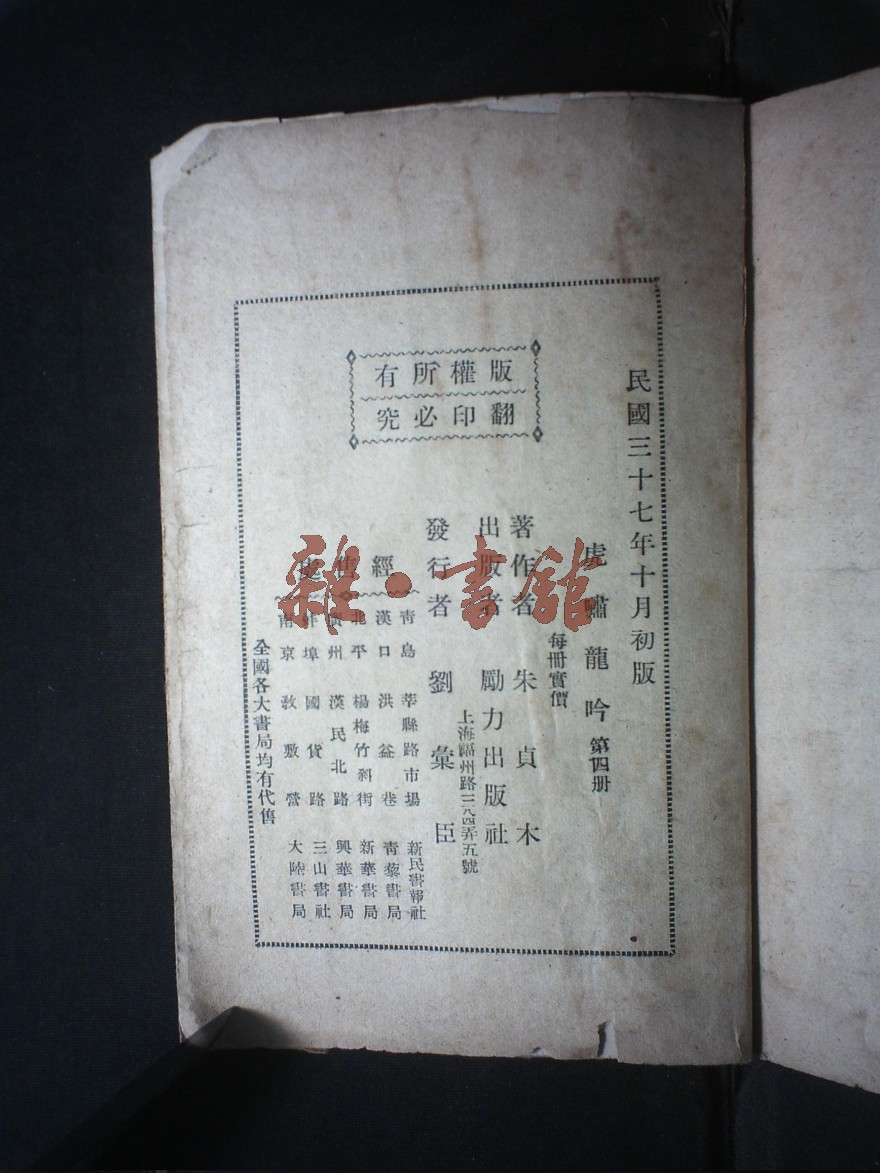 民國三十七年十月初版
虎嘯龍吟 第四册
每冊實價
著作者 朱貞木
出版者 勵力出版社
上海福州路三八四弄五號
發行者 劉彙臣
版權所有
翻印必究
經售處
青島 莘縣路市場 新民書報社
漢口 洪益巷 青藜書局
北平 楊梅竹斜街 新華書局
廣州 漢民北路 興華書局
蚌埠 國貨路 三山書社
南京 敎敷營 大陸書局
全國各大書局均有代售
雜·書館